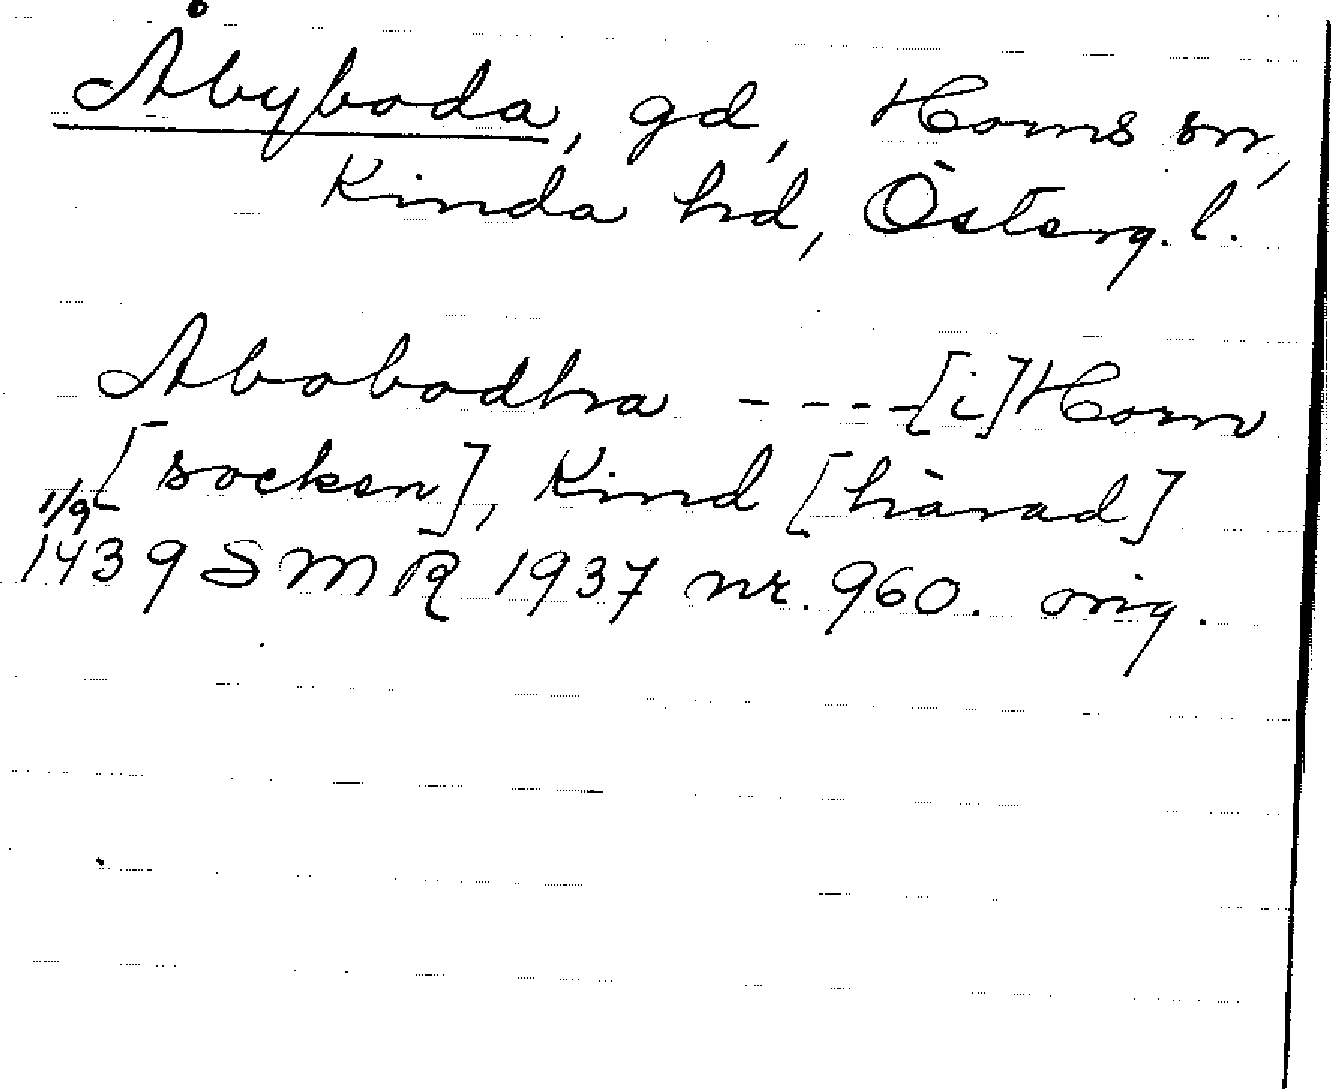 Åbyboda, gd, Horns sn,
Kinda hd, Österg. l.
Abobodhra ----[i] Horn
[socken], Kind [härad]
1/9
1439 SMR 1937 nr. 960. orig.